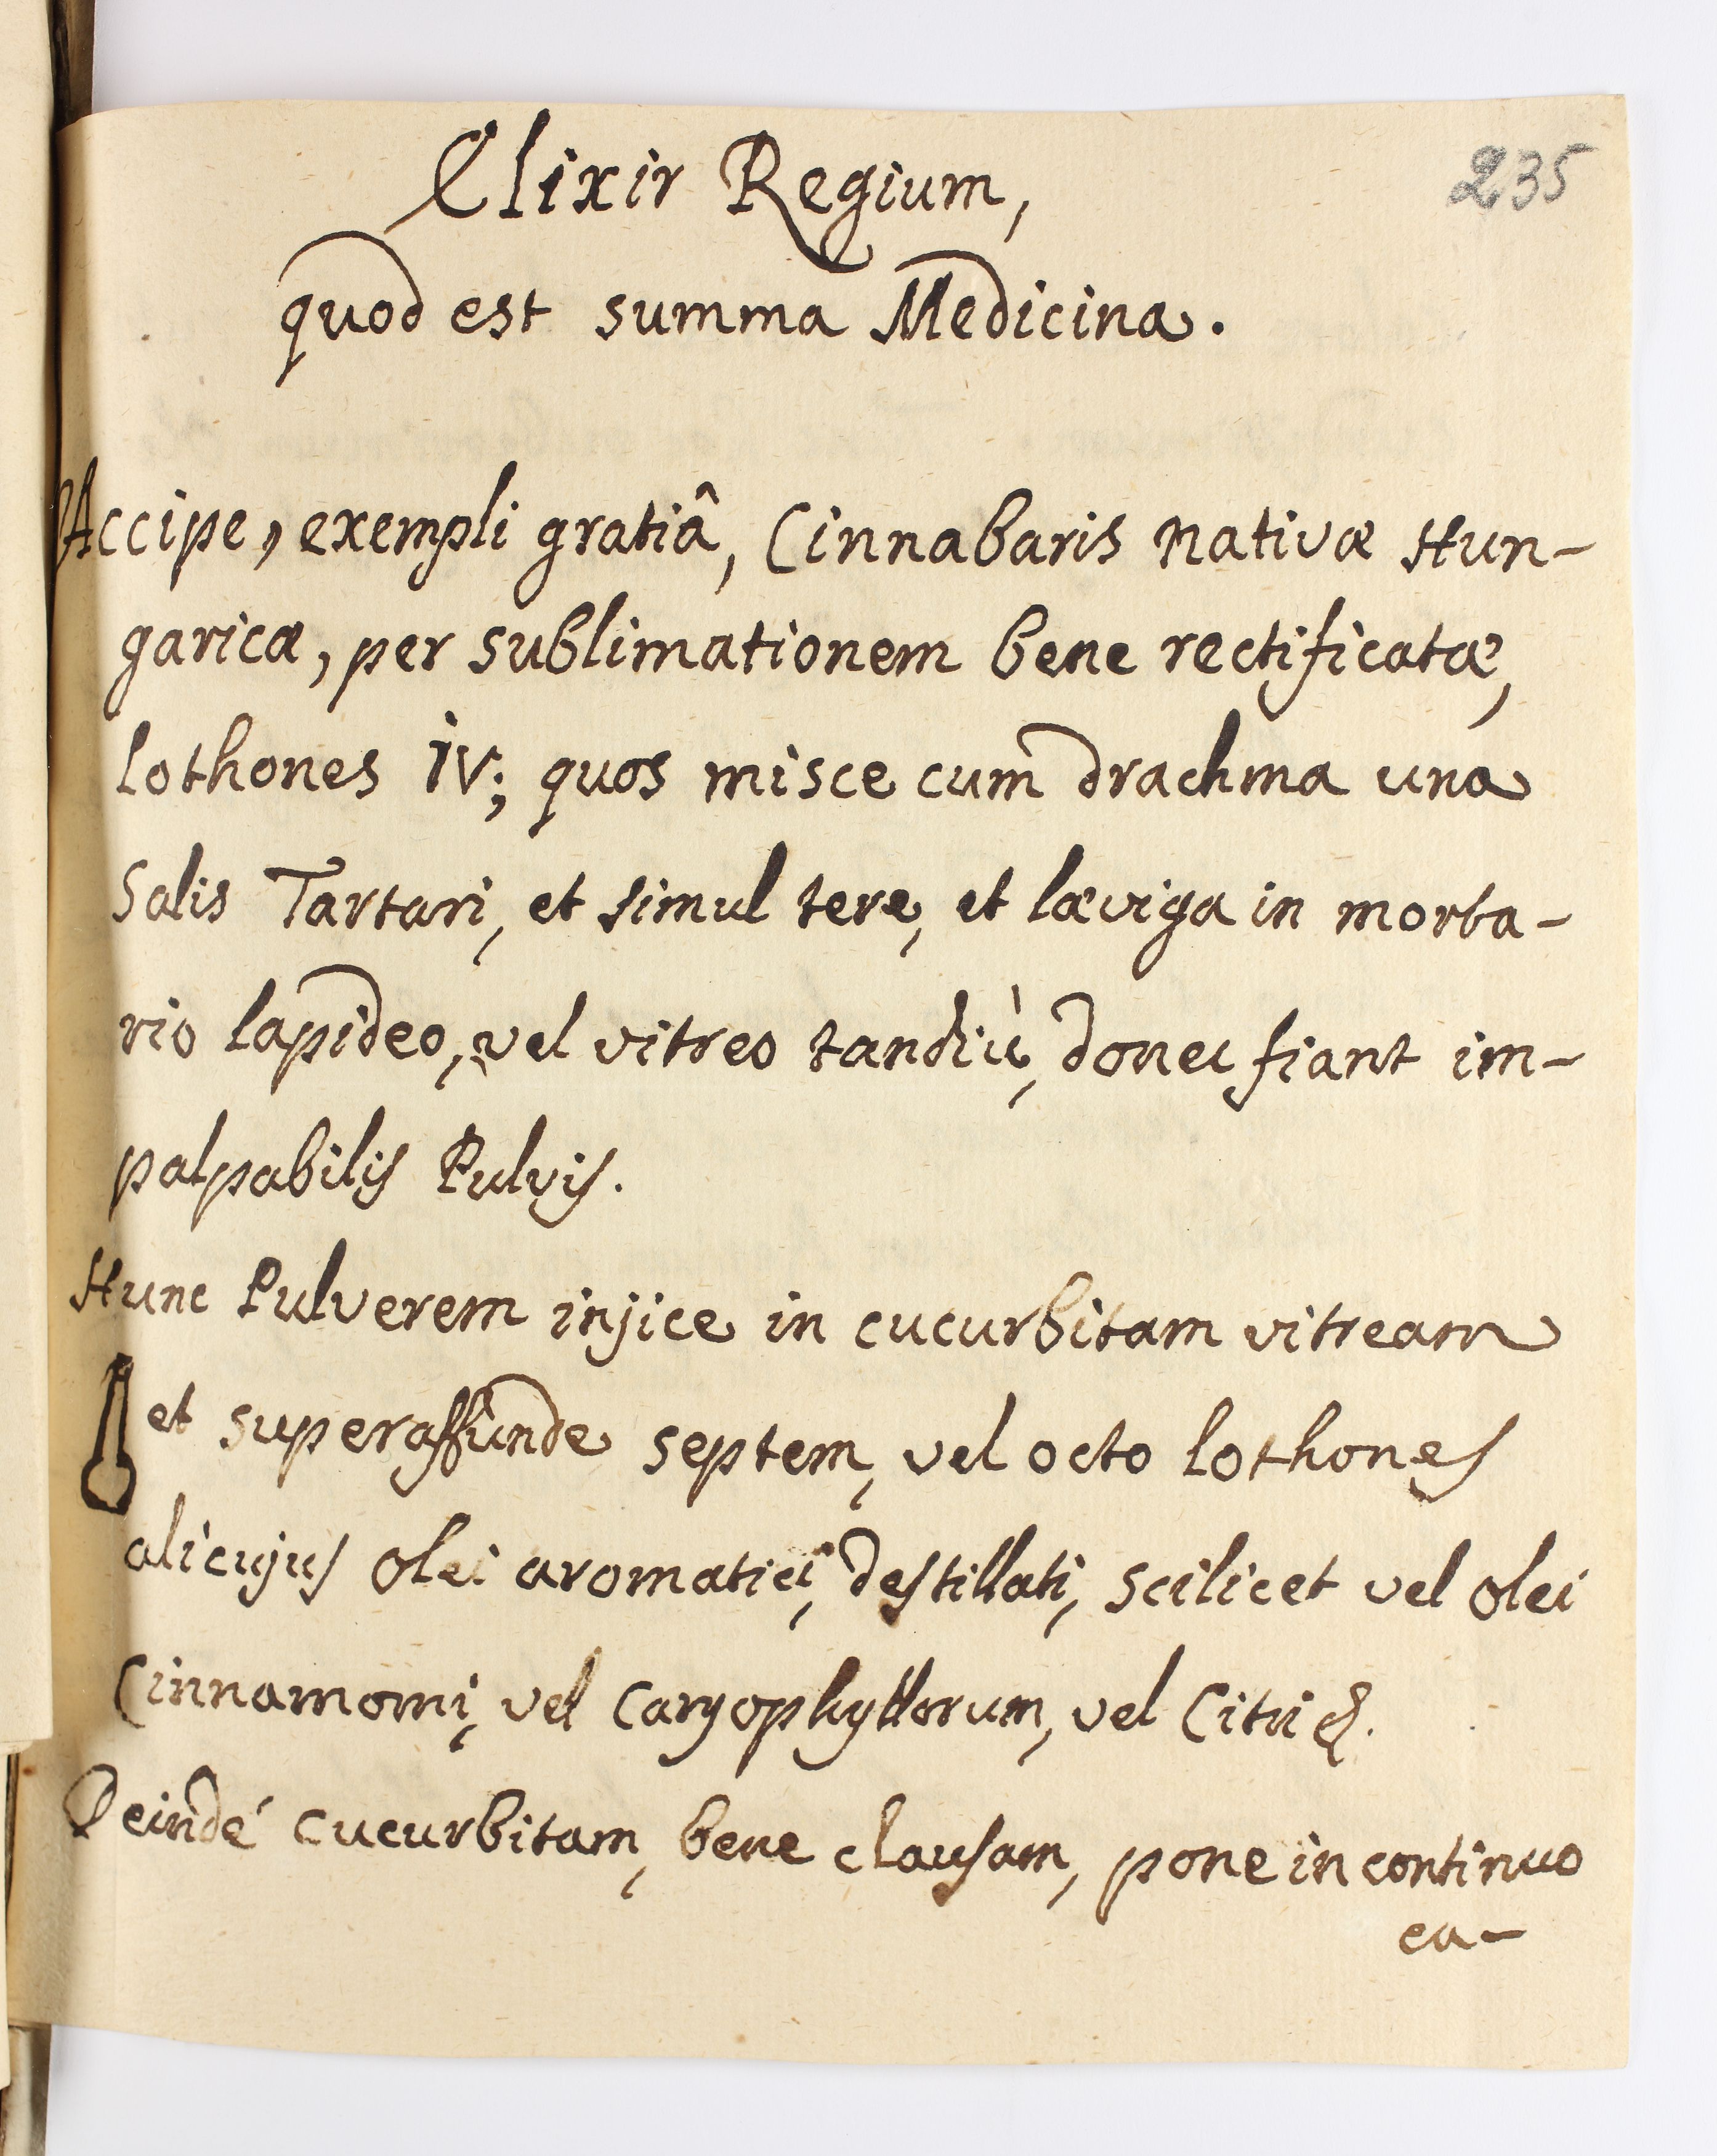 235
Elixir Regium,
quod est summa Medicina.
Accipe, exempli gratiâ, Cinnabaris nativæ Hun-
garicæ, per sublimationem bene rectificatæ,
lothones IV; quos misce cum drachma una
Salis Tartari, et simul tere, et læviga in morta-
rio lapideo, vel vitreo tandiù, donec fiant im-
palpabilis Pulvis.
Hunc Pulverem injice in cucurbitam vitream
et superaffunde septem, vel octo lothones
alicujus olei aromatici, destillati, scilicet vel olei
Cinnamomi, vel Caryophyllorum, vel Citri &.
Deindé cucurbitam, bene clausam, pone in continuo
ca-